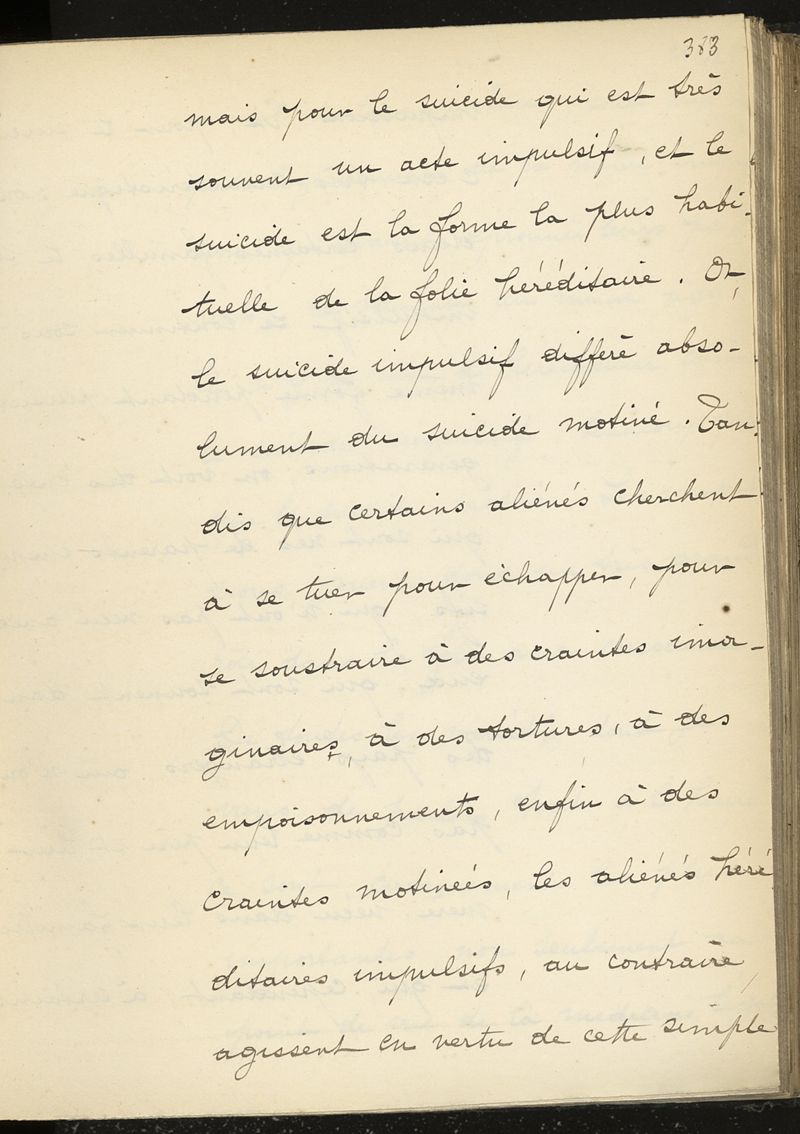 383
mais pour le suicide qui est très
souvent un acte impulsif, et le
suicide est la forme la plus habi-
tuelle de la folie héréditaire. Or,
le suicide impulsif diffère abso-
lument du suicide motivé. Tan-
dis que certains aliénés cherchent
à se tuer pour échapper, pour
se soustraire à des craintes ima-
ginaires, à des tortures, à des
empoisonnements, enfin à des
craintes motivées, les aliénés héré
ditaires impulsifs, au contraire,
agissent en vertu de cette simple